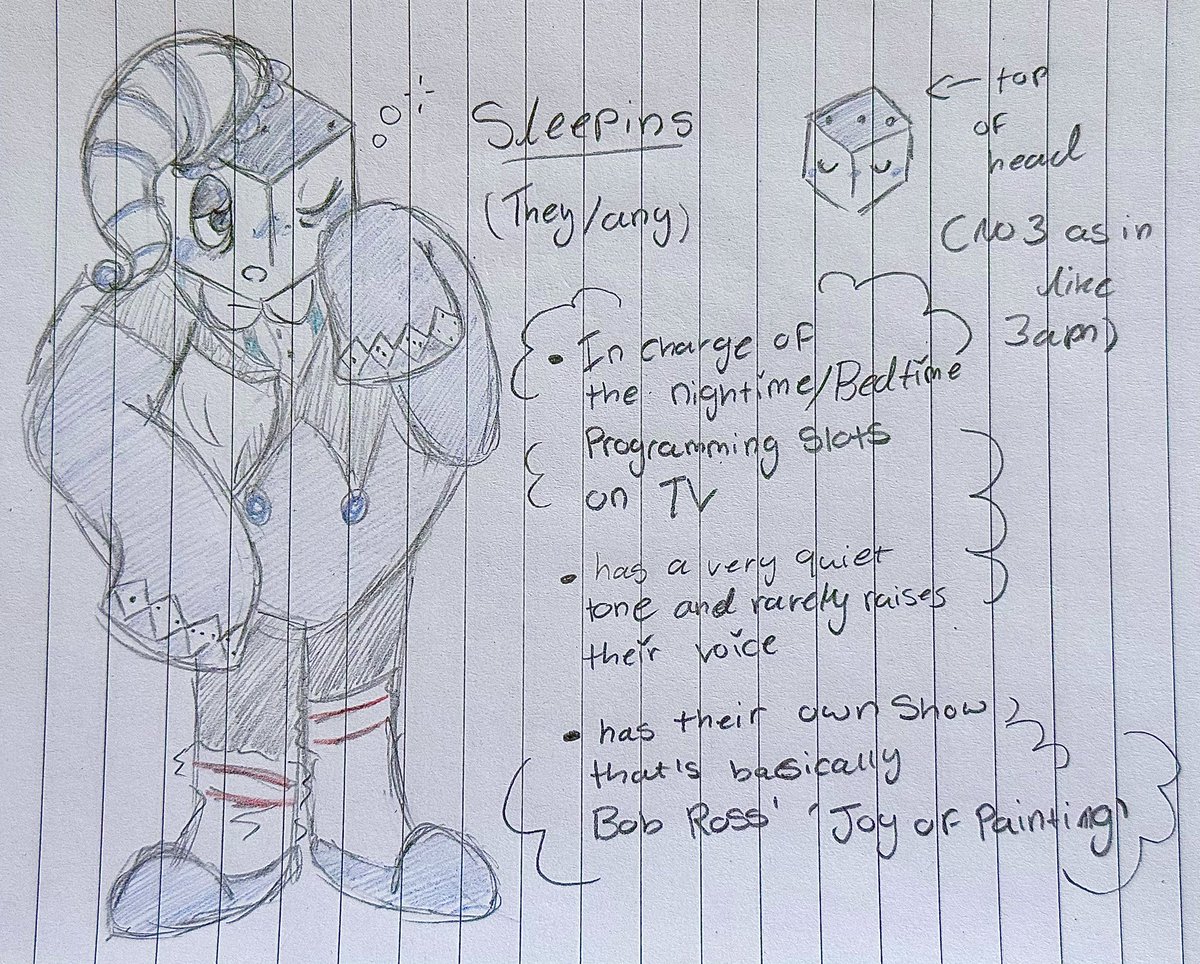 Sleepins
(They/any)
← top
of
head
(NO 3 as in
like
3apm)
• In charge of
the nightime/Bedtime
Programming slots
on TV
• has a very quiet
tone and rarely raises
their voice
• has their own show
that's basically
Bob Ross' 'Joy of Painting'